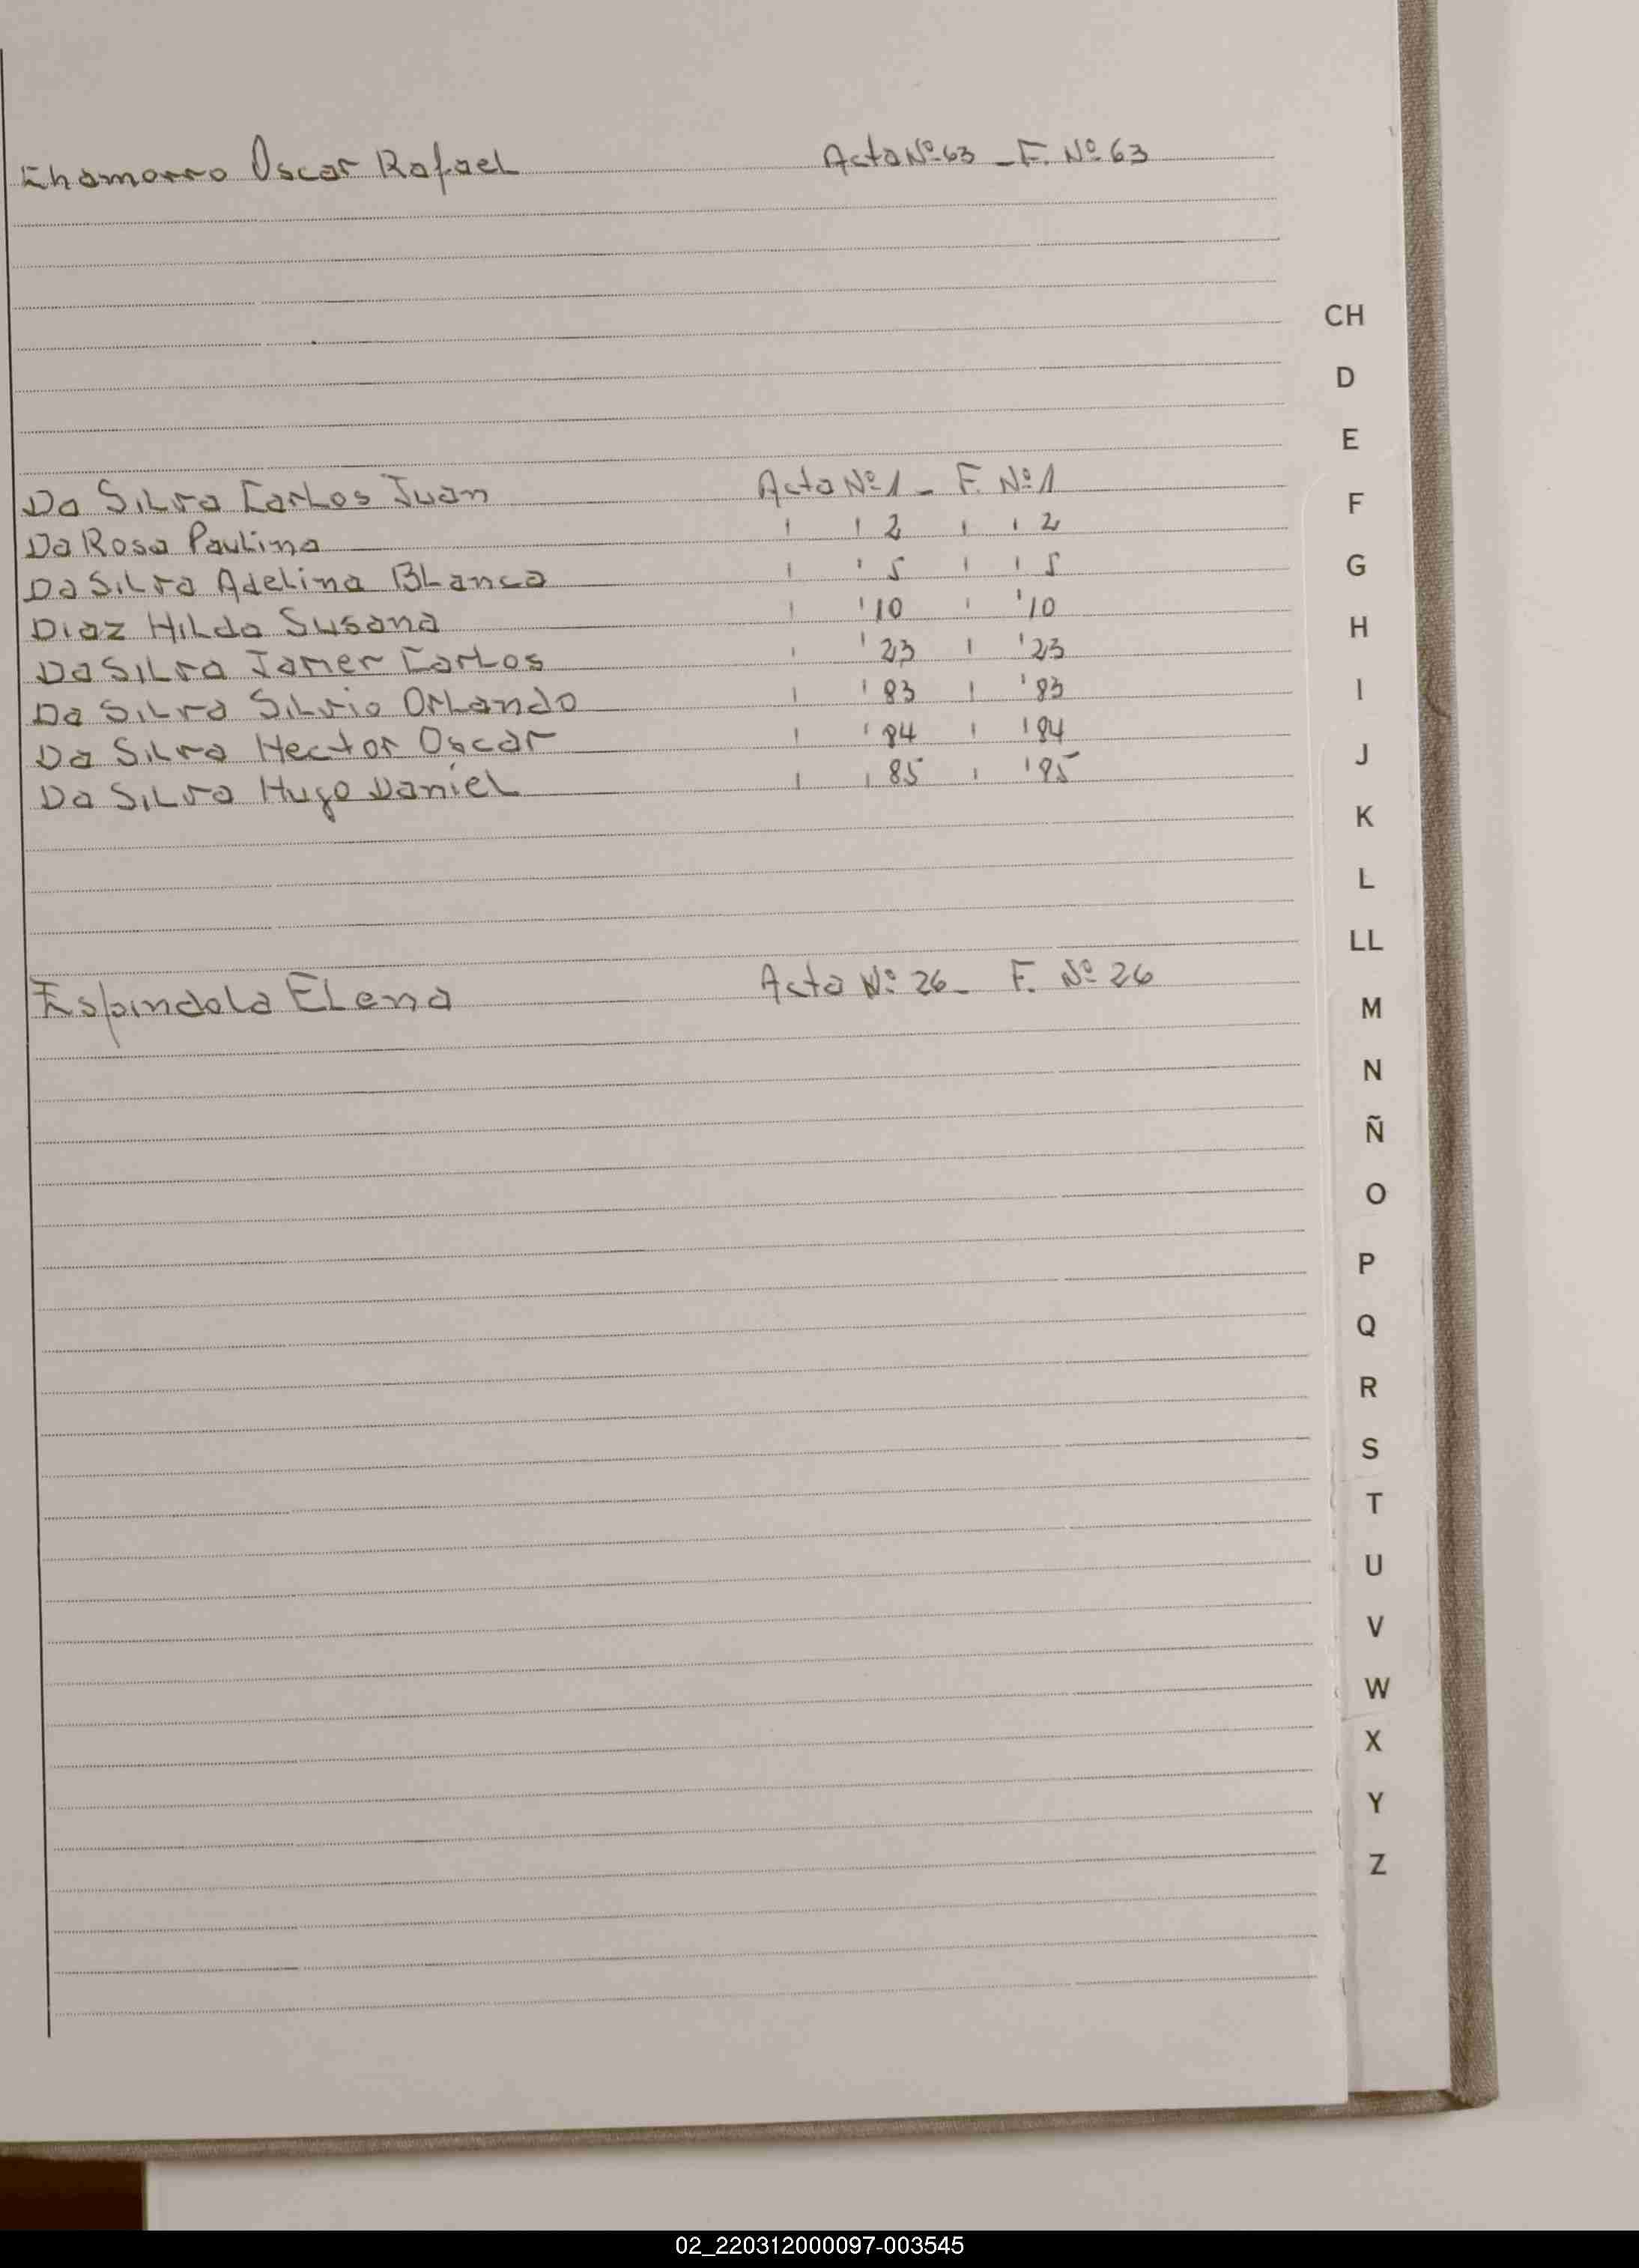 Chamorro Oscar Rafael Acta Nº 63 - F. Nº 63
CH
D
E
Da Silva Carlos Juan Acta Nº 1 - F. Nº 1
F
Da Rosa Paulina ' ' 2 ' ' 2
Da Silva Adelina Blanca ' ' 5 ' ' 5
G
Diaz Hilda Susana ' ' 10 ' ' 10
H
Da Silva Carlos ' ' 23 ' ' 23
Da Silva Silvio Orlando ' ' 83 ' ' 83
I
Da Silva Hector Oscar ' ' 84 ' ' 84
J
Da Silva Hugo Daniel ' ' 85 ' ' 85
K
L
LL
Espindola Elena Acta Nº 26 - F. Nº 26
M
N
Ñ
O
P
Q
R
S
T
U
V
W
X
Y
Z
02_220312000097-003545